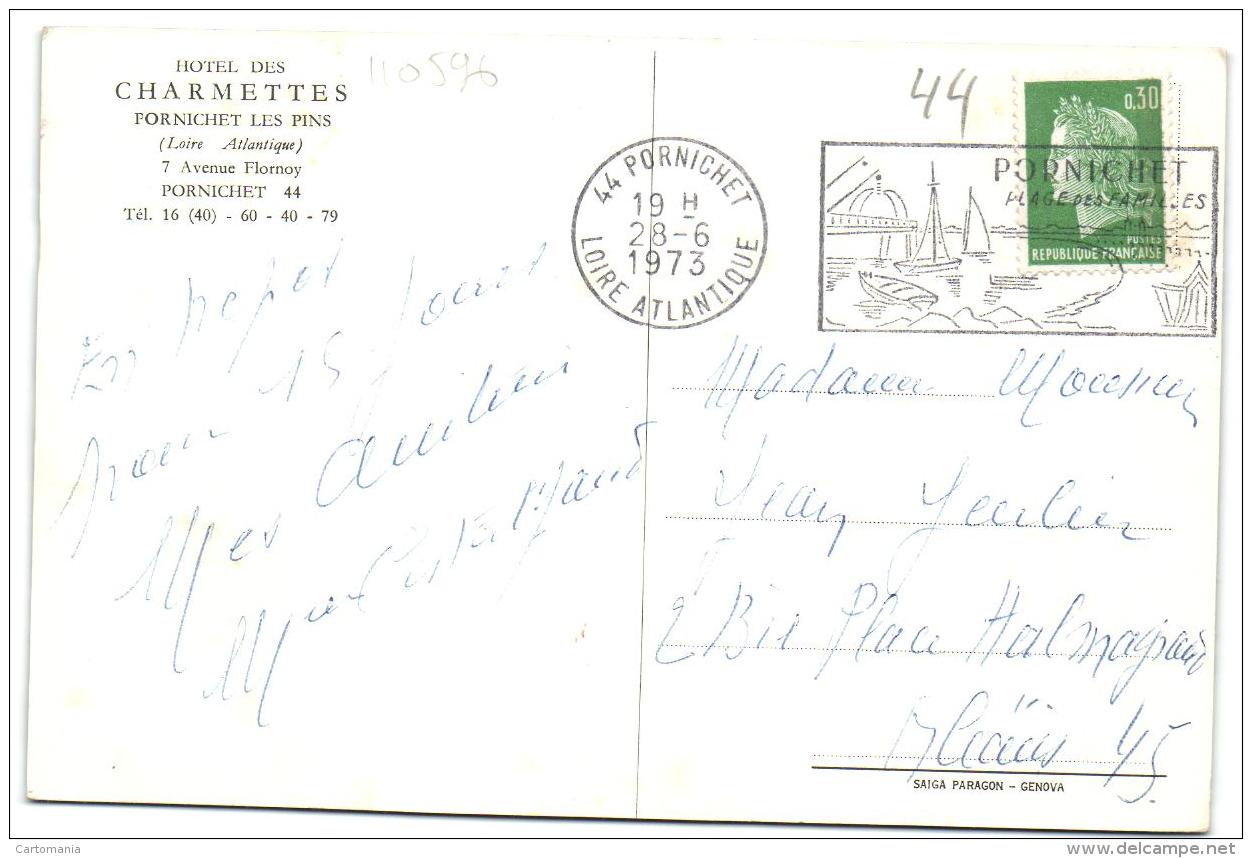 HOTEL DES
CHARMETTES
PORNICHET LES PINS
(Loire Atlantique)
7 Avenue Flornoy
PORNICHET 44
Tél. 16 (40) - 60 - 40 - 79
110596
44
0.30
POSTES
REPUBLIQUE FRANÇAISE
44 PORNICHET
19 H
28-6
1973
LOIRE ATLANTIQUE
PORNICHET
PLAGE DES FAMILLES
En repos
pour 15 jours
Mes amitiés
Madame Monsieur
Jean
2 Bis Place Halmagrand
Orléans 45
SAIGA PARAGON - GENOVA
Cartomania
delcampe.net